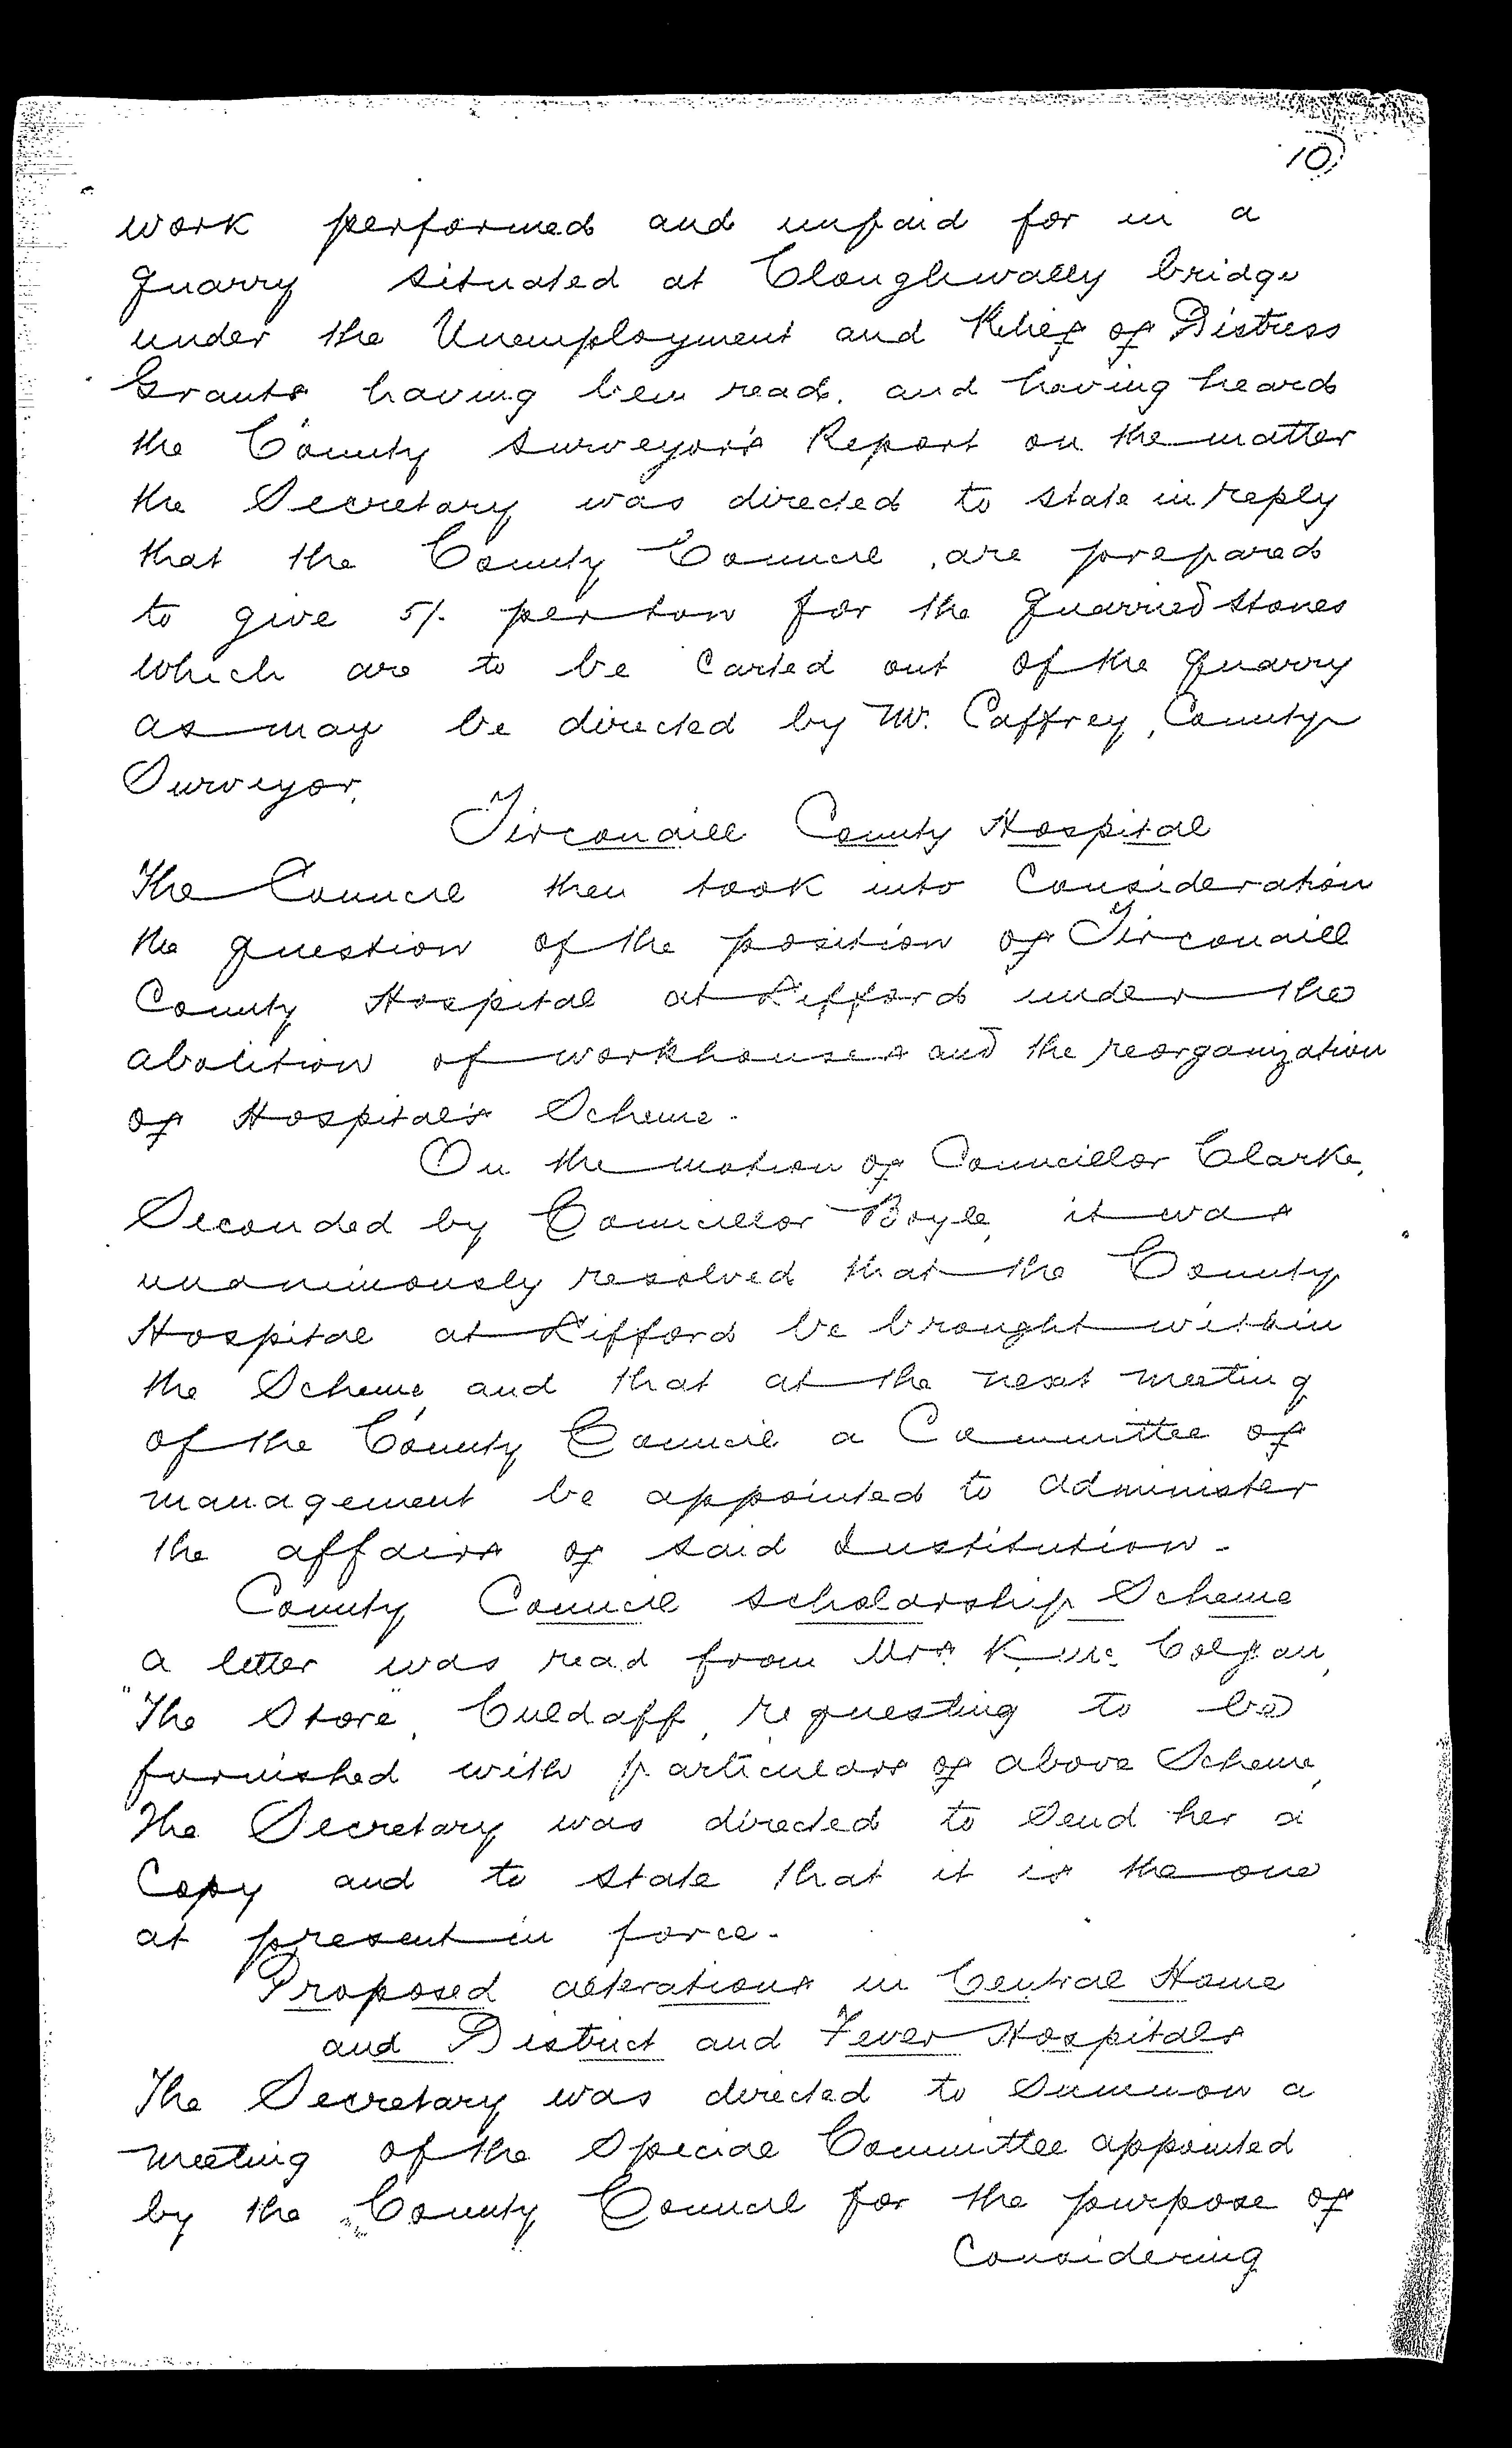 10)
work performed and unpaid for in a
quarry situated at Cloughwally bridge
under the Unemployment and Relief of Distress
Grants, having been read, and having heard
the County Surveyor's Report on the matter
the Secretary was directed to state in reply
that the County Council, are prepared
to give 5/. per ton for the quarried stones
which are to be carted out of the quarry
as may be directed by Mr. Caffrey, County
Surveyor.
Tirconaill County Hospital
The Council then took into Consideration
the question of the position of Tirconaill
County Hospital at Lifford under the
abolition of workhouses and the reorganization
of Hospital's Scheme.
On the motion of Councillor Clarke,
Seconded by Councillor Boyle, it was
unanimously resolved that the County
Hospital at Lifford be brought within
the Scheme, and that at the next meeting
of the County Council a Committee of
management be appointed to administer
the affairs of said Institution.
County Council Scholarship Scheme
a letter was read from Mrs. K. Mc. Colgan,
"The Store", Culdaff, requesting to be
furnished with particulars of above Scheme,
The Secretary was directed to send her a
Copy and to state that it is the one
at present in force.
Proposed alterations in Central Home
and District and Fever Hospitals
The Secretary was directed to Summon a
meeting of the Special Committee appointed
by the County Council for the purpose of
Considering